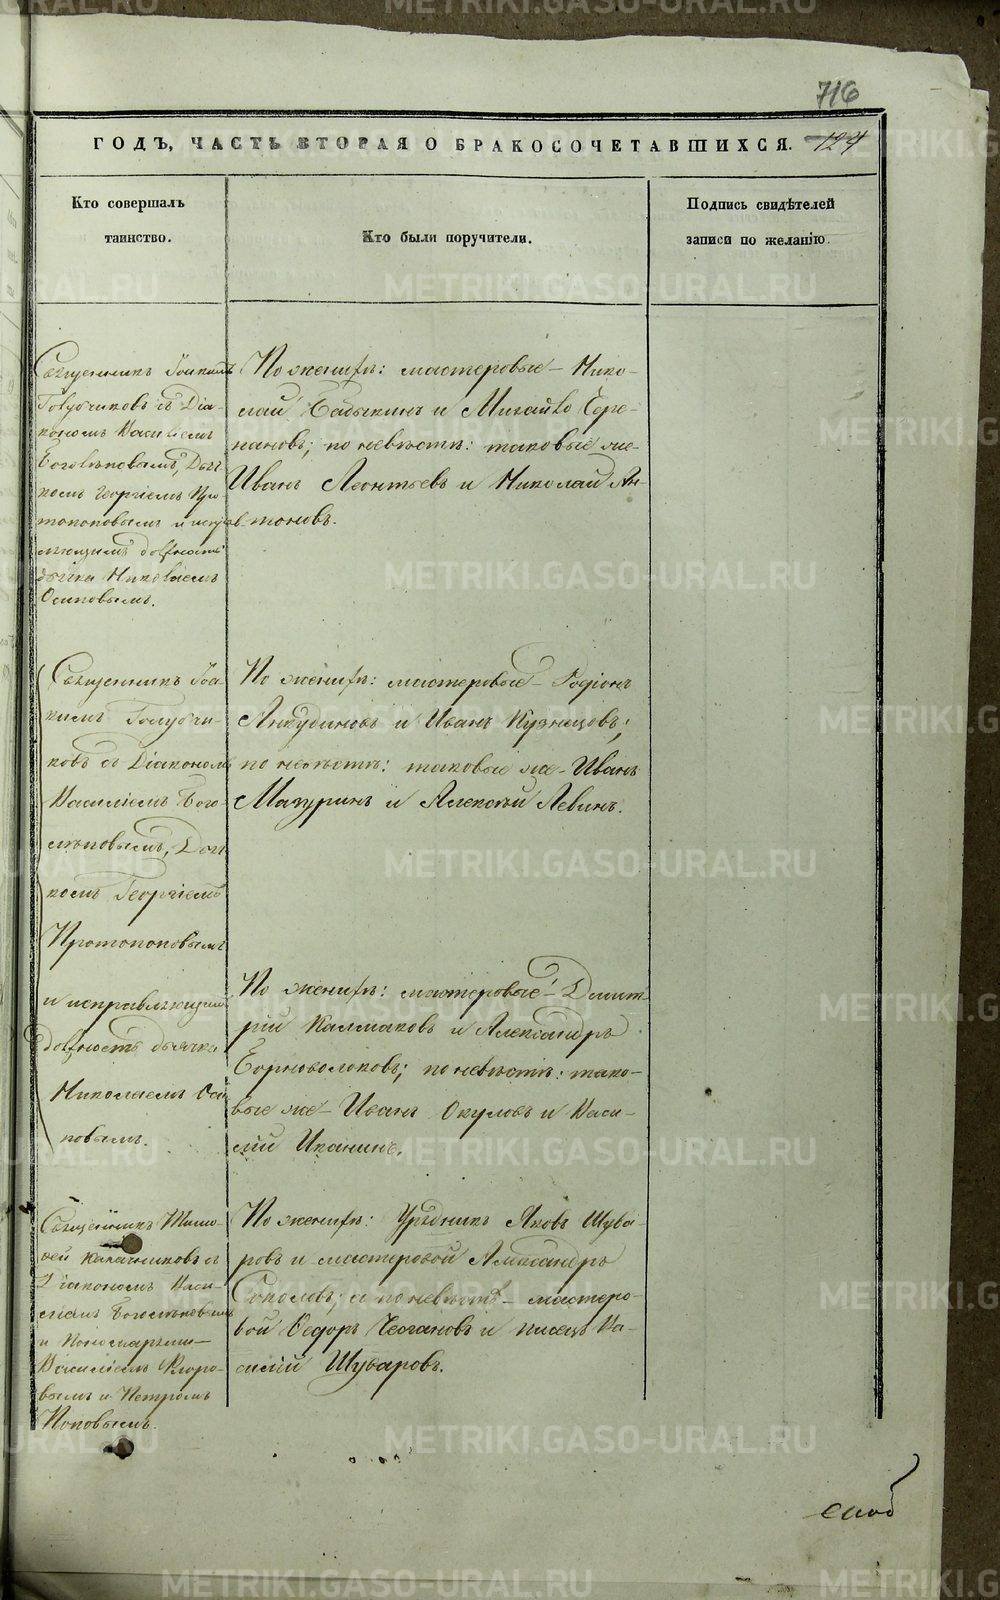 716
ГОДЪ, ЧАСТЬ ВТОРАЯ О БРАКОСОЧЕТАВШИХСЯ. 124
Кто совершалъ
таинство.
Кто были поручители.
Подпись свидѣтелей
записи по желанію.
Священникъ Іоакимъ
Голубчиковъ съ Діа-
кономъ Василіемъ
Боголѣповымъ, Дьяч-
комъ Георгіемъ Про-
топоповымъ и исправ-
ляющимъ должность
дьячка Николаемъ
Осиповымъ.
По женихѣ: мастеровые Нико-
лай Бабыкинъ и Михайло Чере-
пановъ; по невѣстѣ: таковые же
Иванъ Леонтьевъ и Николай Ан-
тоновъ.
Священникъ Іоа-
кимъ Голубчи-
ковъ съ Діакономъ
Василіемъ Бого-
лѣповымъ, Дьяч-
комъ Георгіемъ
Протопоповымъ
и исправляющимъ
должность дьячка
Николаемъ Оси-
повымъ.
По женихѣ: мастеровые Родіонъ
Анкудиновъ и Иванъ Кузнецовъ;
по невѣстѣ: таковые же Иванъ
Мазуринъ и Алексѣй Левинъ.
По женихѣ: мастеровые Димит-
рій Калмаковъ и Александръ
Черноволоковъ; по невѣстѣ: тако-
вые же Иванъ Окуловъ и Васи-
лій Иканинъ.
Священникъ Тимо-
фей Калачниковъ съ
Діакономъ Васи-
ліемъ Боголѣповымъ
и Пономарями
Василіемъ
вымъ и Петромъ
Поповымъ.
По женихѣ: Урядникъ Яковъ Шува-
ровъ и мастеровой Александръ
Соколовъ; а по невѣстѣ мастеро-
вой Ѳедоръ и писецъ Ва-
силій Шуваровъ.
METRIKI.GASO-URAL.RU